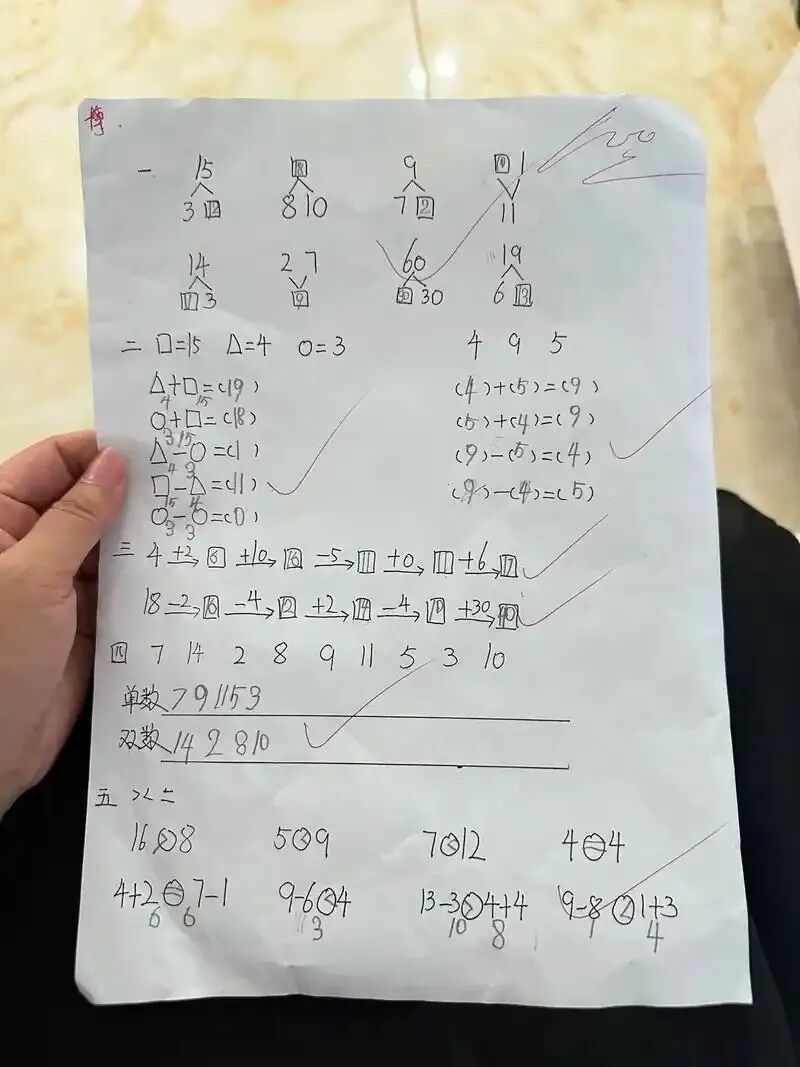 博
100
一 15 18 9 10 1
3 12 8 10 7 2 11
14 2 7 60 19
11 3 9 30 30 6 13
二 □=15 △=4 ○=3 4 9 5
△+□=(19) (4)+(5)=(9)
4 15
○+□=(18) (5)+(4)=(9)
3 15
△-○=(1) (9)-(5)=(4)
4 3
□-△=(11) (9)-(4)=(5)
15 4
○-○=(0)
3 3
三 4 +2→ 6 +10→ 16 -5→ 11 +0→ 11 +6→ 17
18 -2→ 16 -4→ 12 +2→ 14 -4→ 10 +30→ 40
四 7 14 2 8 9 11 5 3 10
单数 7 9 11 5 3
双数 14 2 8 10
五 > < =
16>8 5<9 7<12 4=4
4+2=7-1 9-6<4 13-3>4+4 9-8<1+3
6 6 3 10 8 1 4